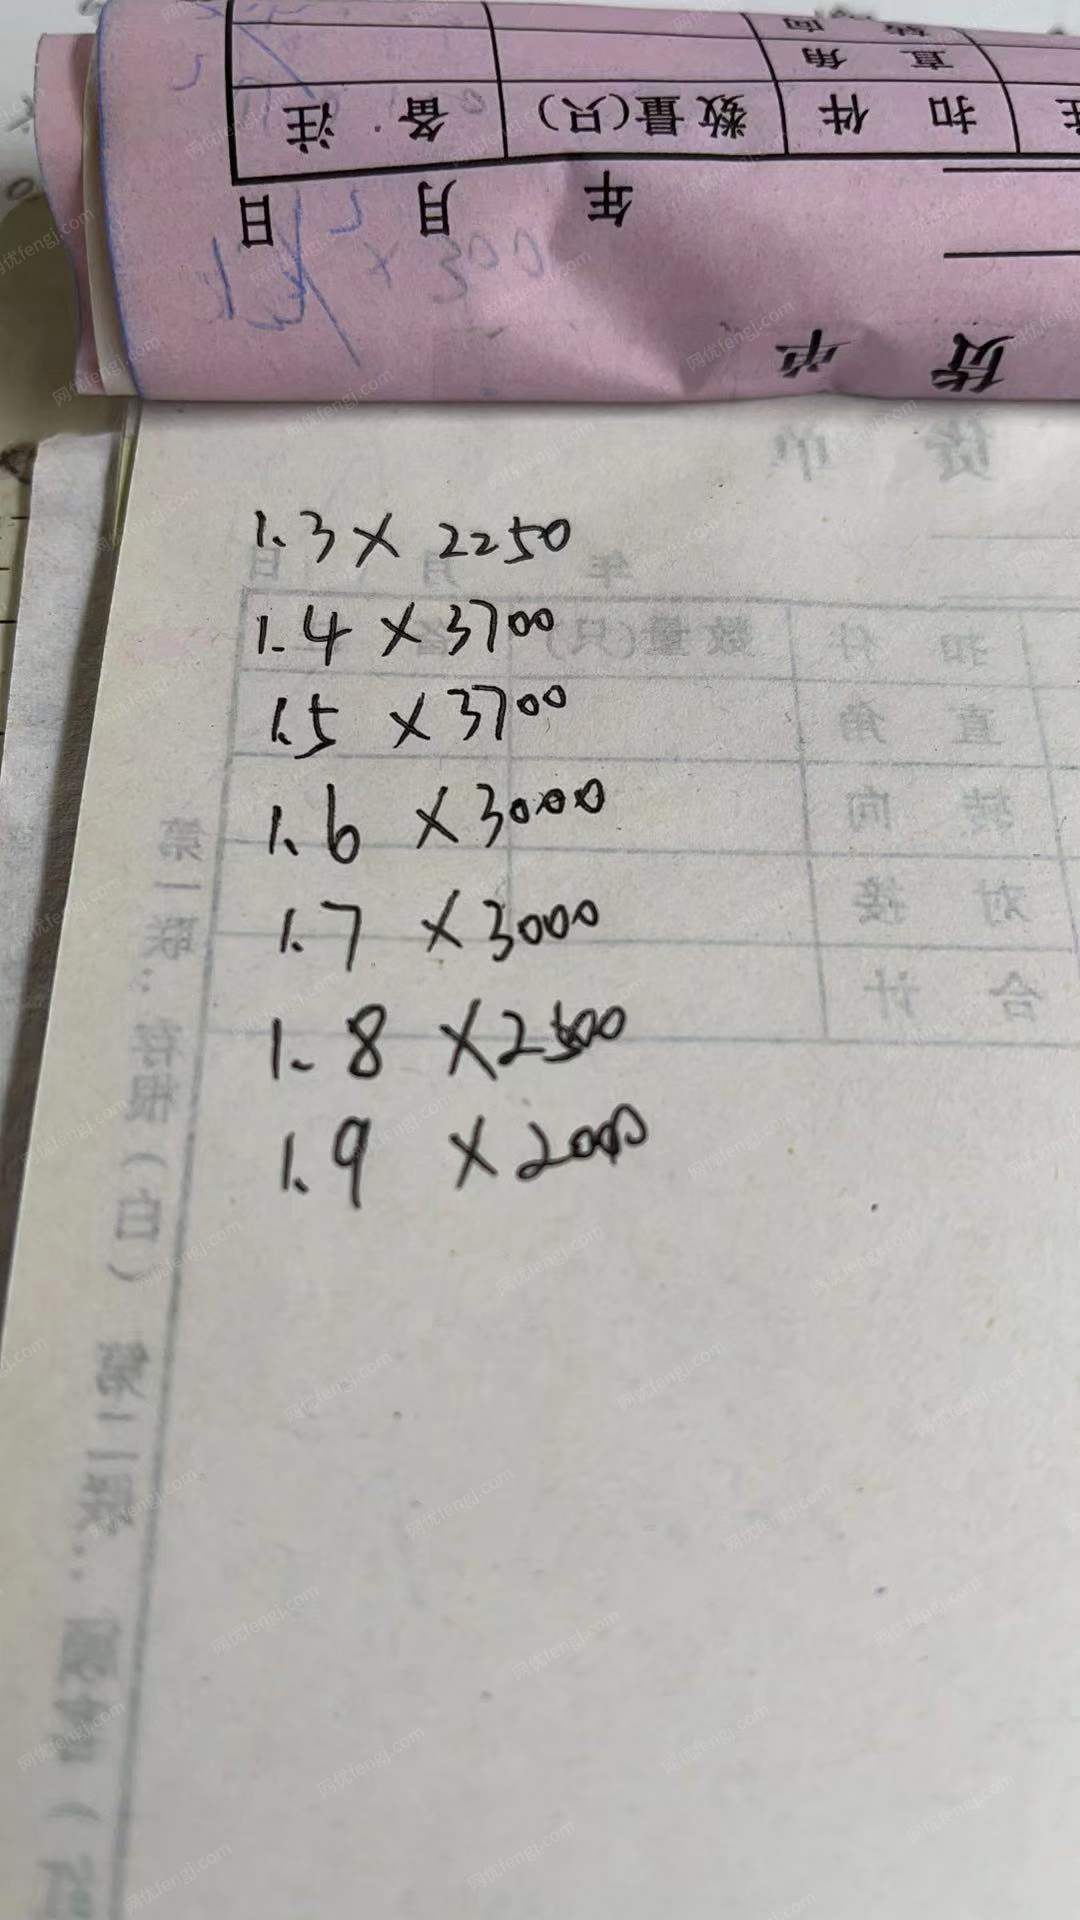 直 角
注 备 数量(只) 扣 件
日 月 年
单 货
1.3 × 2250
1.4 × 3700
1.5 × 3700
1.6 × 3000
1.7 × 3000
1.8 × 2500
1.9 × 2000
货 单
年 月 日
扣 件 数量(只)
直 角
转 向
对 接
合 计
第一联:存根(白) 第二联:
网优fengj.com